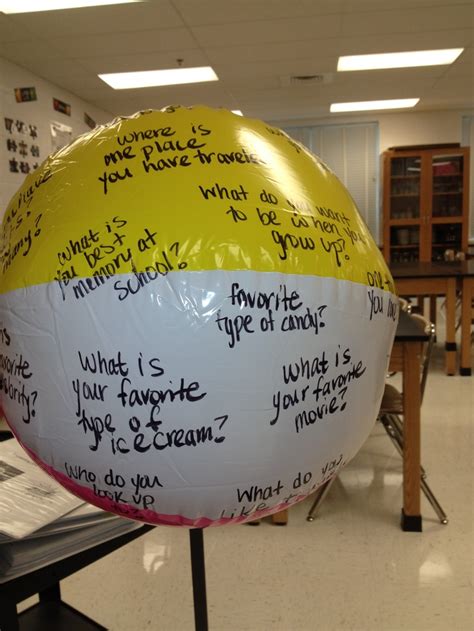 where is
one place
you have traveled
What do you want
to be when you
grow up?
have
what is
you best
memory at
school?
favorite
type of candy?
one
you
What is
your favorite
type of
ice cream?
What is
your favorite
movie?
favorite
Who do you
look up
What do you
like